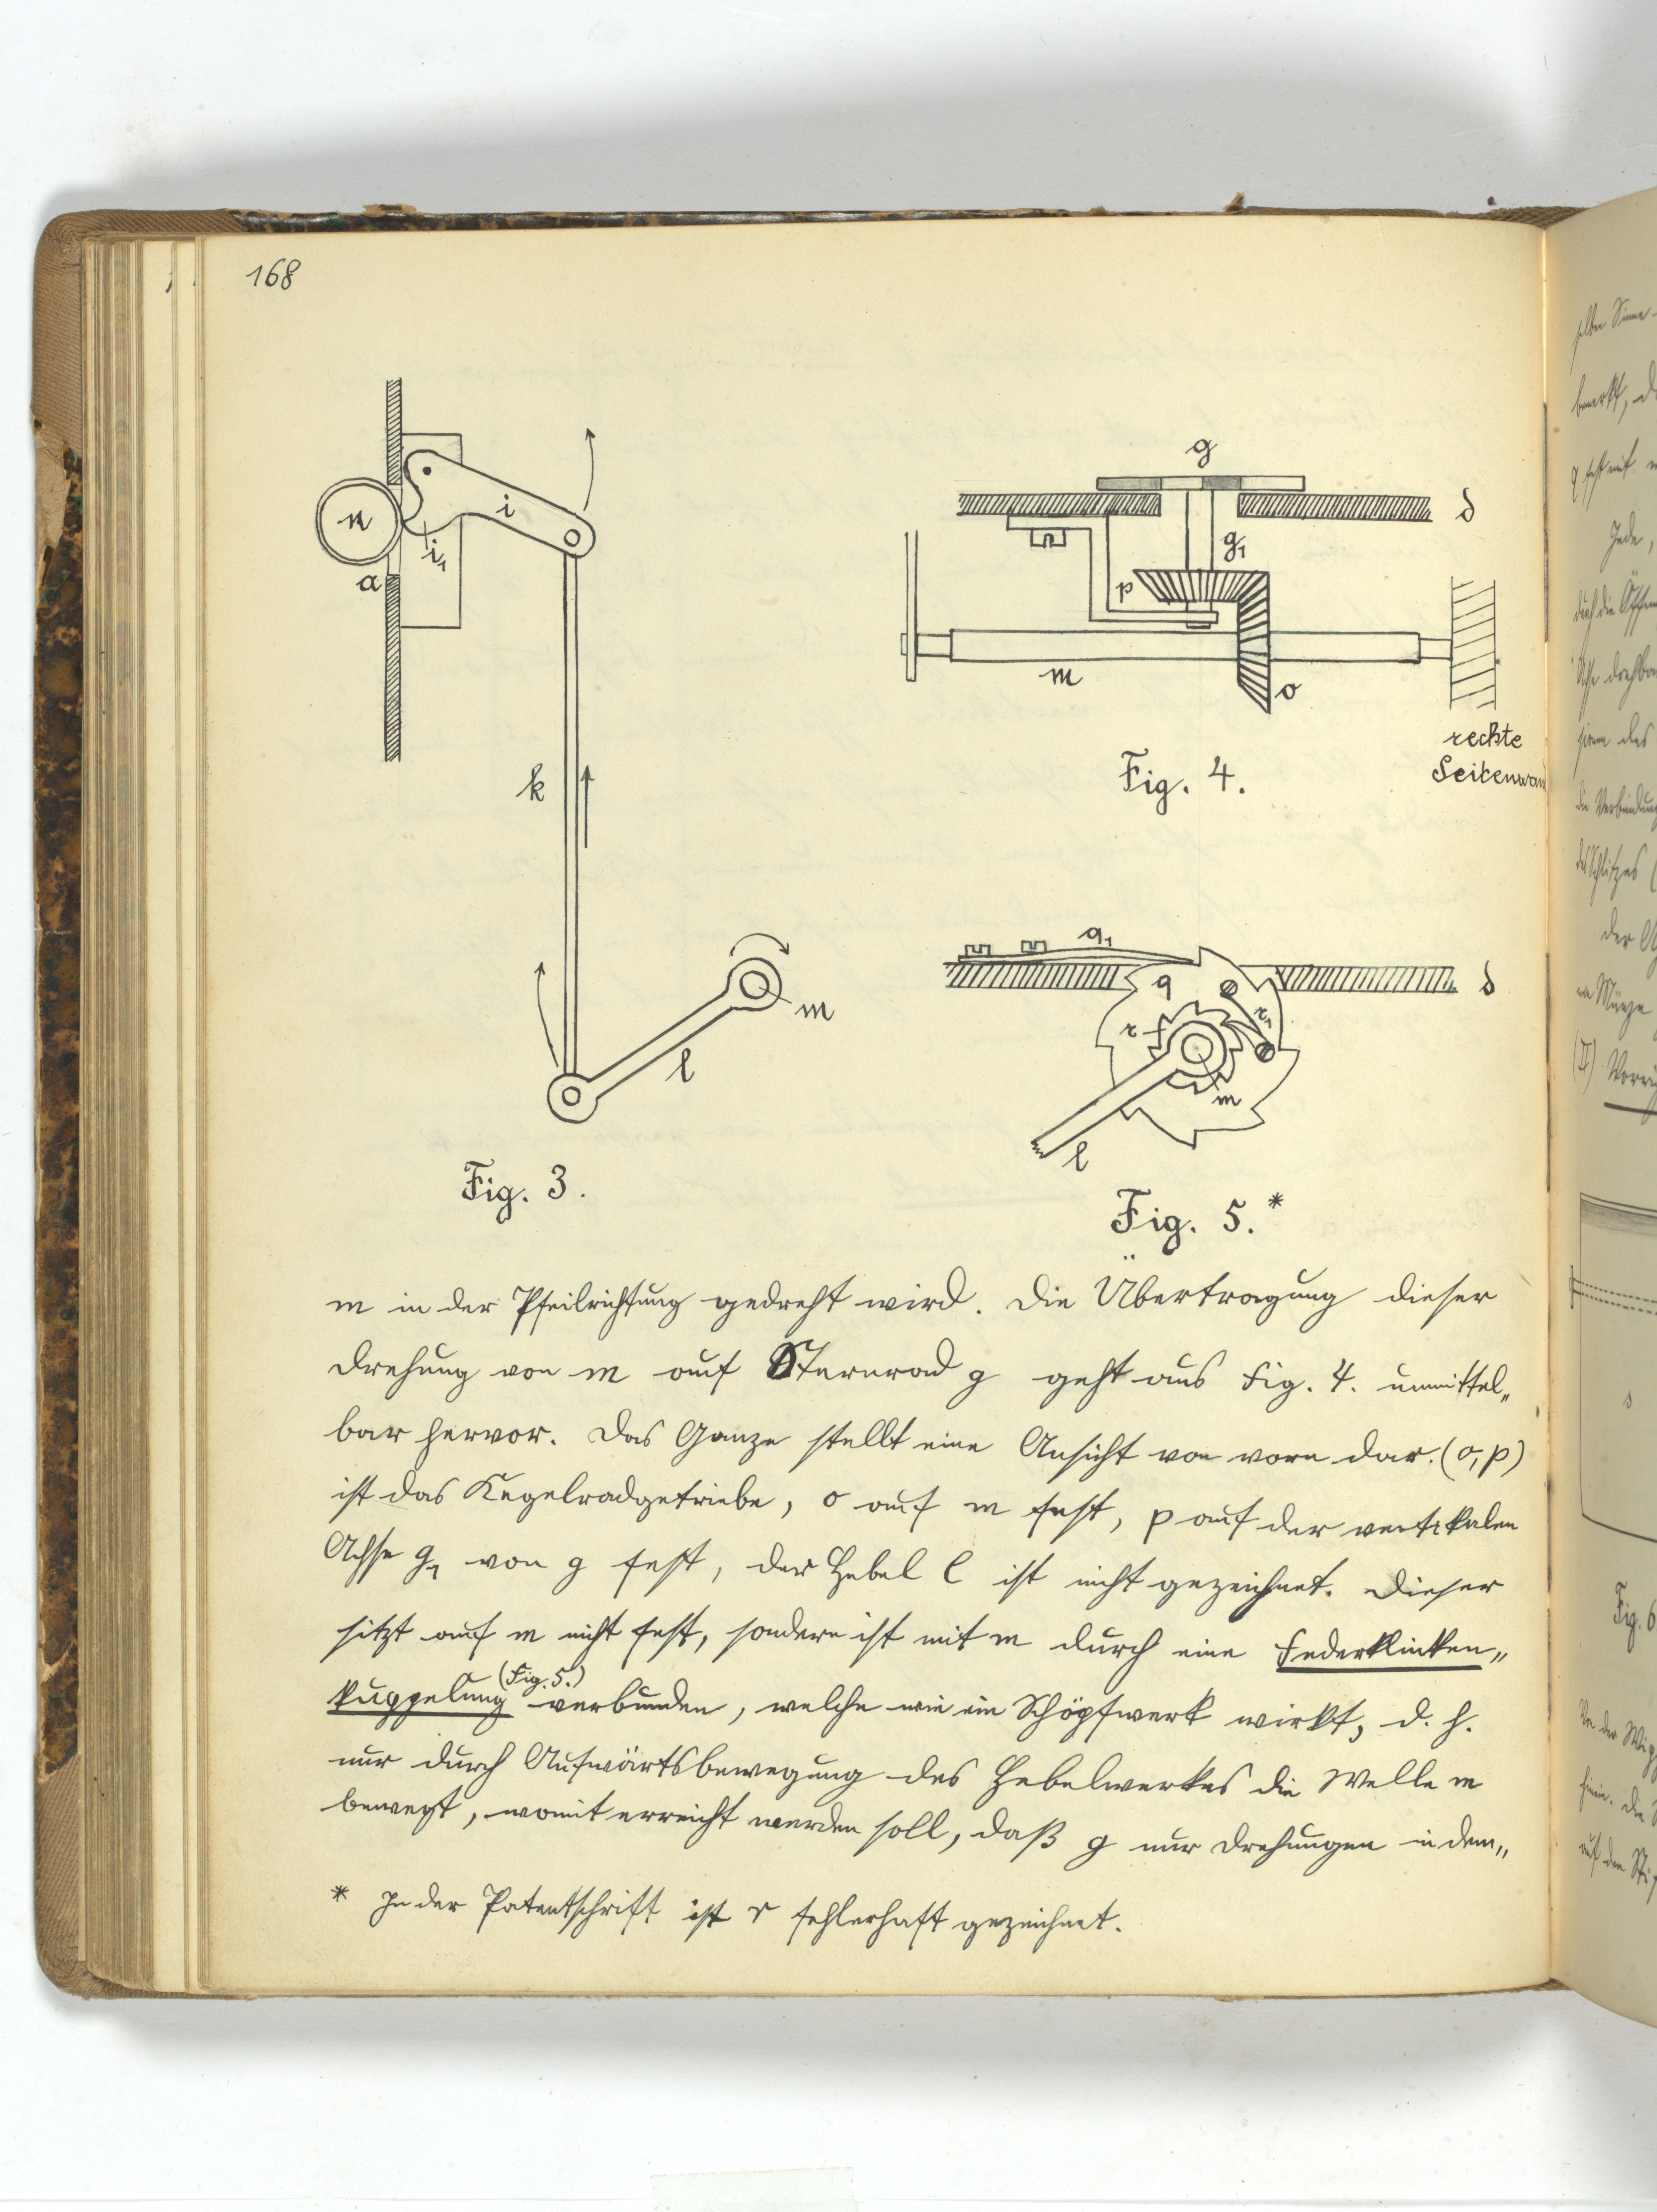 168
n
i
i₁
a
k
l
m
Fig. 3.
g
d
g₁
p
m
o
rechte
Seitenwan
Fig. 4.
q₁
d
q
r
r₁
m
l
Fig. 5.*
m in der Pfeilrichtung gedreht wird. Die Übertragung dieser
Drehung von m auf Sternrad g geht aus Fig. 4. unmittel„
bar hervor. Das Ganze stellt eine Ansicht von vorn dar. (o, p)
ist das Kegelradgetriebe, o auf m fest, p auf der vertikalen
Achse g₁ von g fest, der Hebel l ist nicht gezeichnet. Dieser
sitzt auf m nicht fest, sondern ist mit m durch eine Federklinken„
(Fig. 5.)
kuppelung verbunden, welche wie ein Schöpfwerk wirkt, d. h.
nur durch Aufwärtsbewegung des Hebelwerkes die Welle m
bewegt, womit erreicht werden soll, daß g nur Drehungen in dem„
* In der Patentschrift ist r fehlerhaft gezeichnet.
selben Sinne
bemerkt,
q fest mit
Jede,
durch die
Achse drehbar
des
die Verbindung
des Schlitzes (
der
Münze
(II)
s
Fig. 6
der
die
auf den